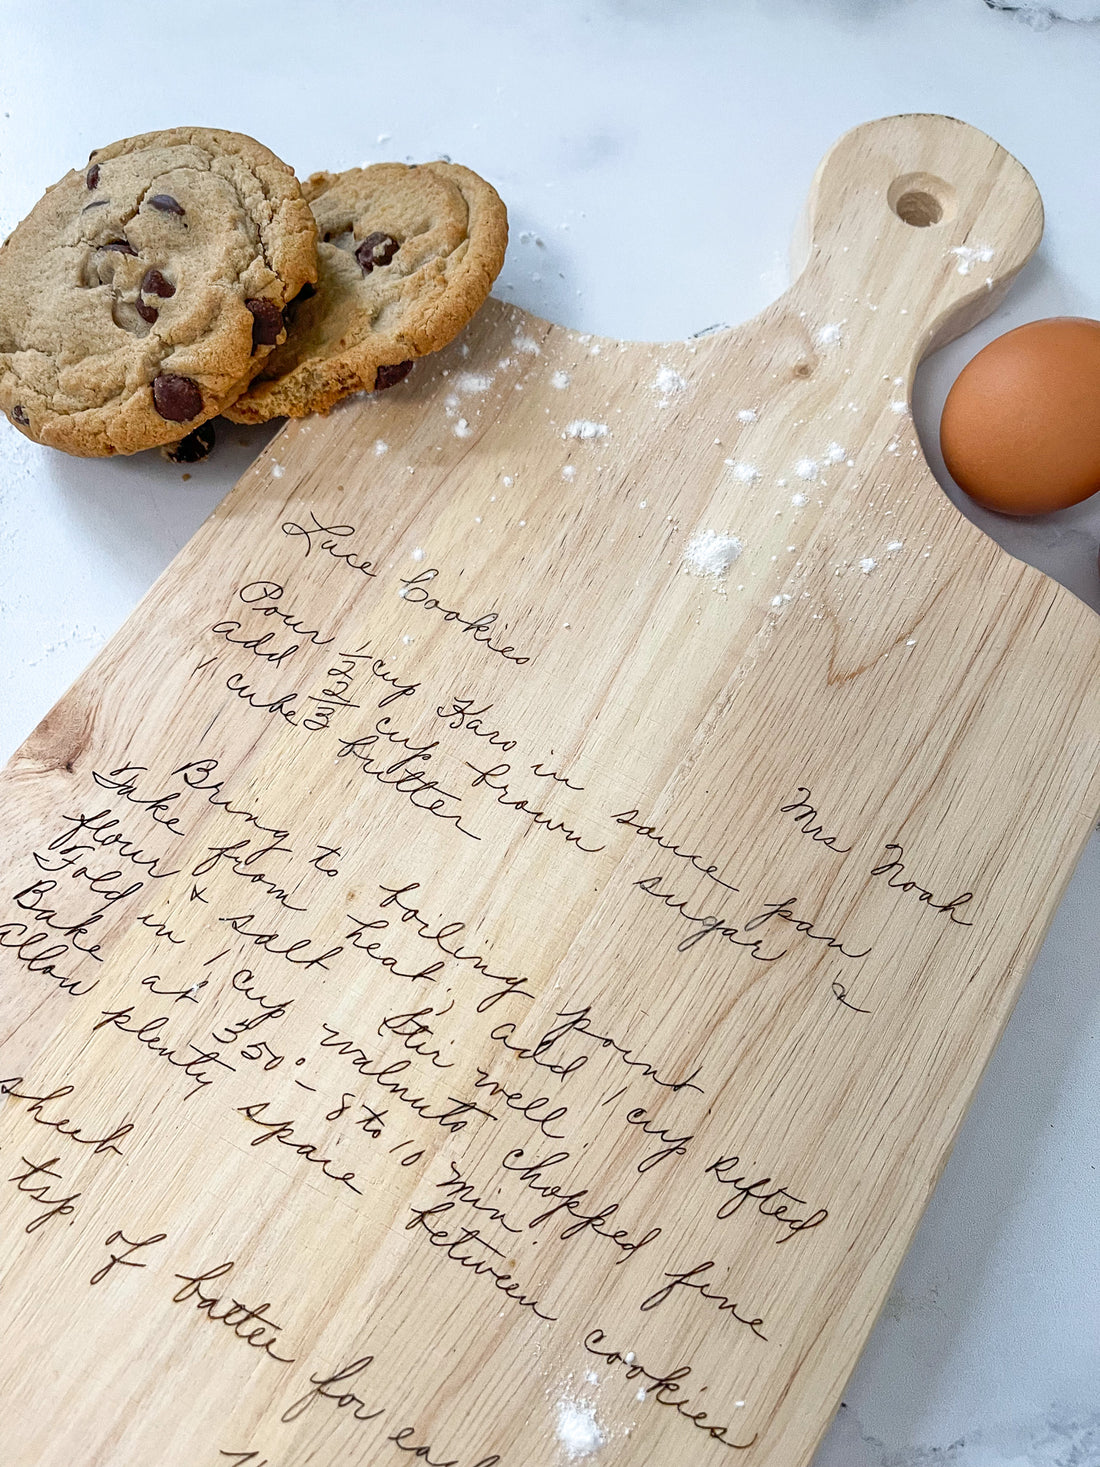 Lace Cookies
Mrs Noah
Pour 1/2 cup Karo in sauce pan
add 2/3 cup brown sugar &
1 cube butter
Bring to boiling point
Take from heat, add 1 cup sifted
flour + salt. Stir well.
Fold in 1 cup walnuts chopped fine
Bake at 350° – 8 to 10 min.
Allow plenty space between cookies
sheet
tsp. of batter for each